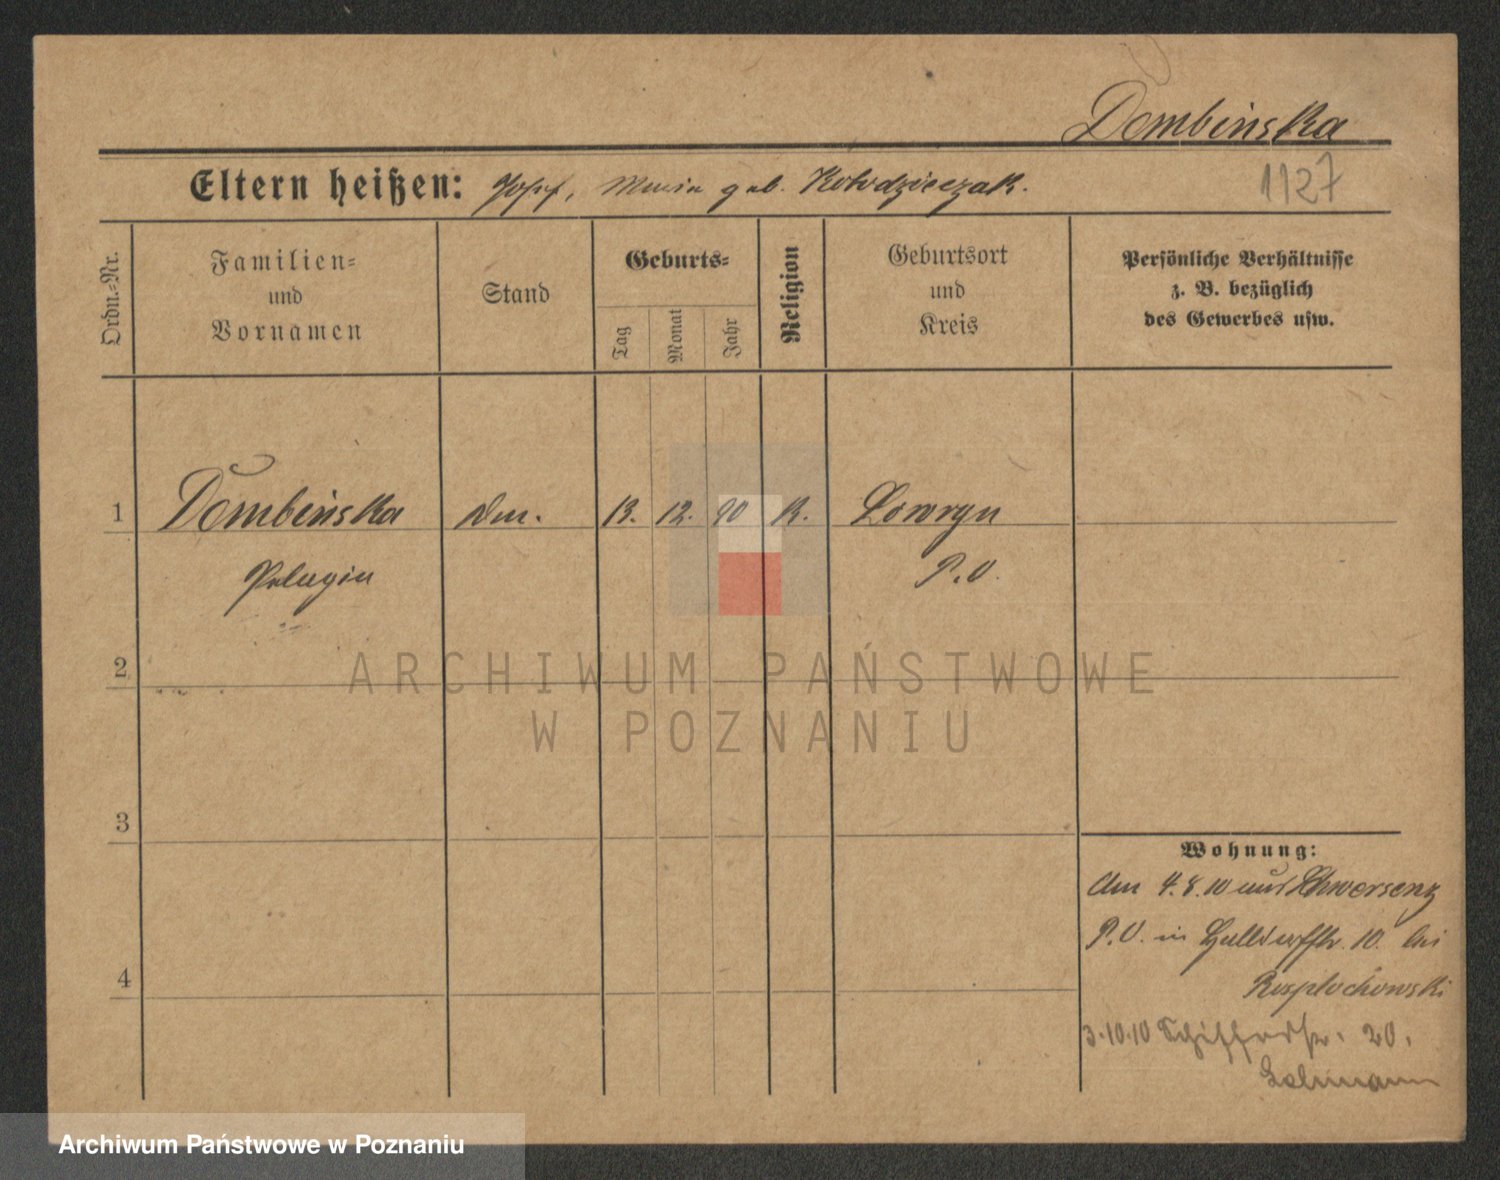 Dembinska
Eltern heißen: Josef, Maria geb. Kolodzieczak.
1127
Ordn.-Nr.
Familien-
und
Vornamen
Stand
Geburts-
Tag
Monat
Jahr
Religion
Geburtsort
und
Kreis
Persönliche Verhältnisse
z. B. bezüglich
des Gewerbes usw.
1 Dembinska 13. 12. 90 K. Lowryn
Pelagia P.O.
2
ARCHIWUM PAŃSTWOWE
W POZNANIU
3
Wohnung:
Am 4.8.10 aus Schwersenz
P.O. in Halldorffstr. 10. bei
4
Rosplochowski
3.10.10 Schifferstr. 20.
Lehmann
Archiwum Państwowe w Poznaniu